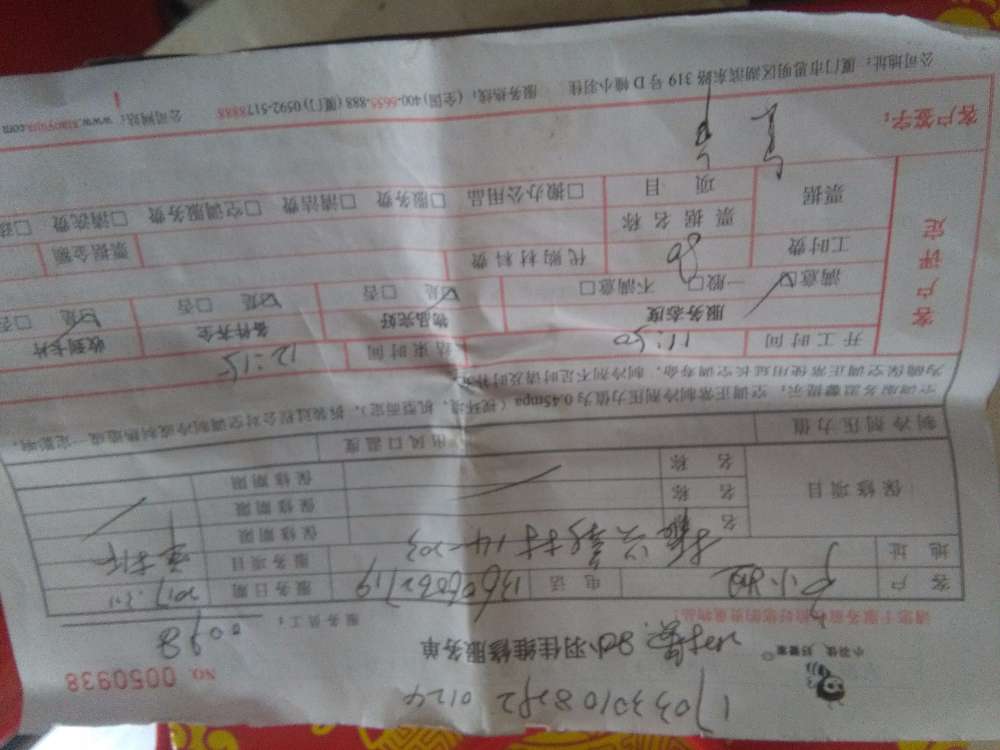 17033010832 0124
NO. 0050938
小羽佳，好管家
小羽佳维修服务单
请您于服务前收捡好您的贵重物品！
服务员工： 0098
客户 电话 服务日期 2017.3.31
地址 14-203 服务项目
保修项目 名称 保修期限
名称 保修期限
名称 保修期限
制冷剂压力值 出风口温度
空调服务温馨提示：空调正常制冷剂压力值为0.45mpa（视环境、机型而定），拆装过程会对空调制冷或制热造成一定影响，
为确保空调正常使用延长空调寿命，制冷剂不足时请及时补充
开工时间 11:50 结束时间 12:15
客户评定
服务态度 物品完好 备件齐全 收到卡片
满意☑ 一般□ 不满意□ ☑是 □否 ☑是 □否 ☑是 □否
工时费 80 代购材料费 票据金额
票据 票据名称
项目 □搬办公用品 □服务费 □清洁费 □空调服务费 □清洗费
客户签字：
公司地址：厦门市思明区湖滨东路319号D幢小羽佳 服务热线：(全国)400-6655-888 (厦门)0592-5178888 公司网站：www.xiaoyujia.com